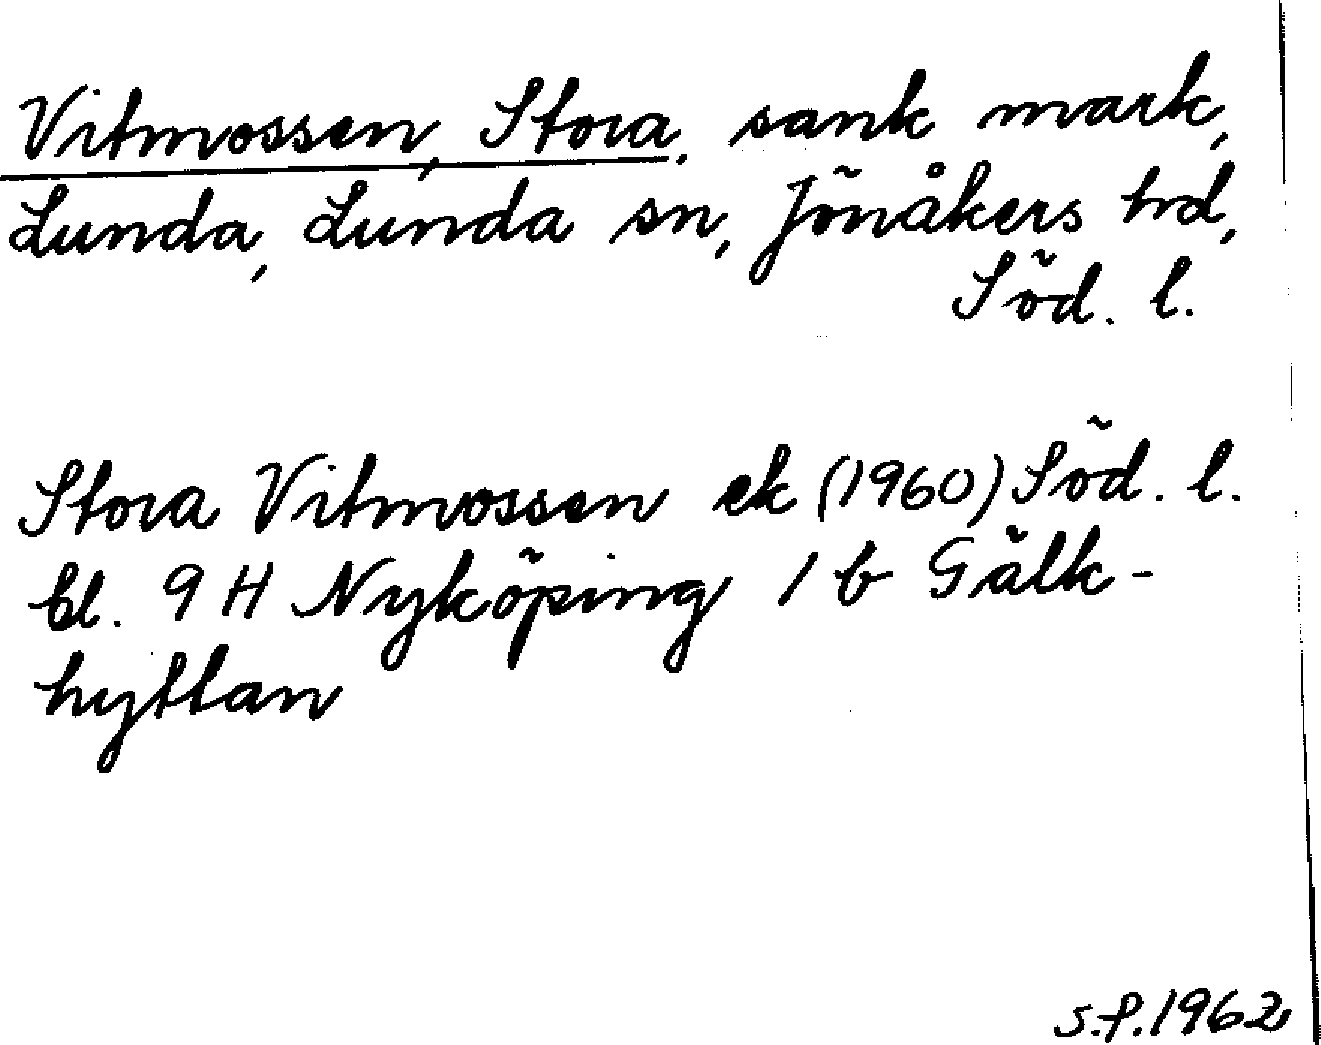 Vitmossen, Stora, sank mark,
Lunda, Lunda sn, Jönåkers hd,
Söd. l.
Stora Vitmossen ek (1960) Söd. l.
bl. 9 H Nyköping 1 b Gälk-
hyttan
S.P. 1962